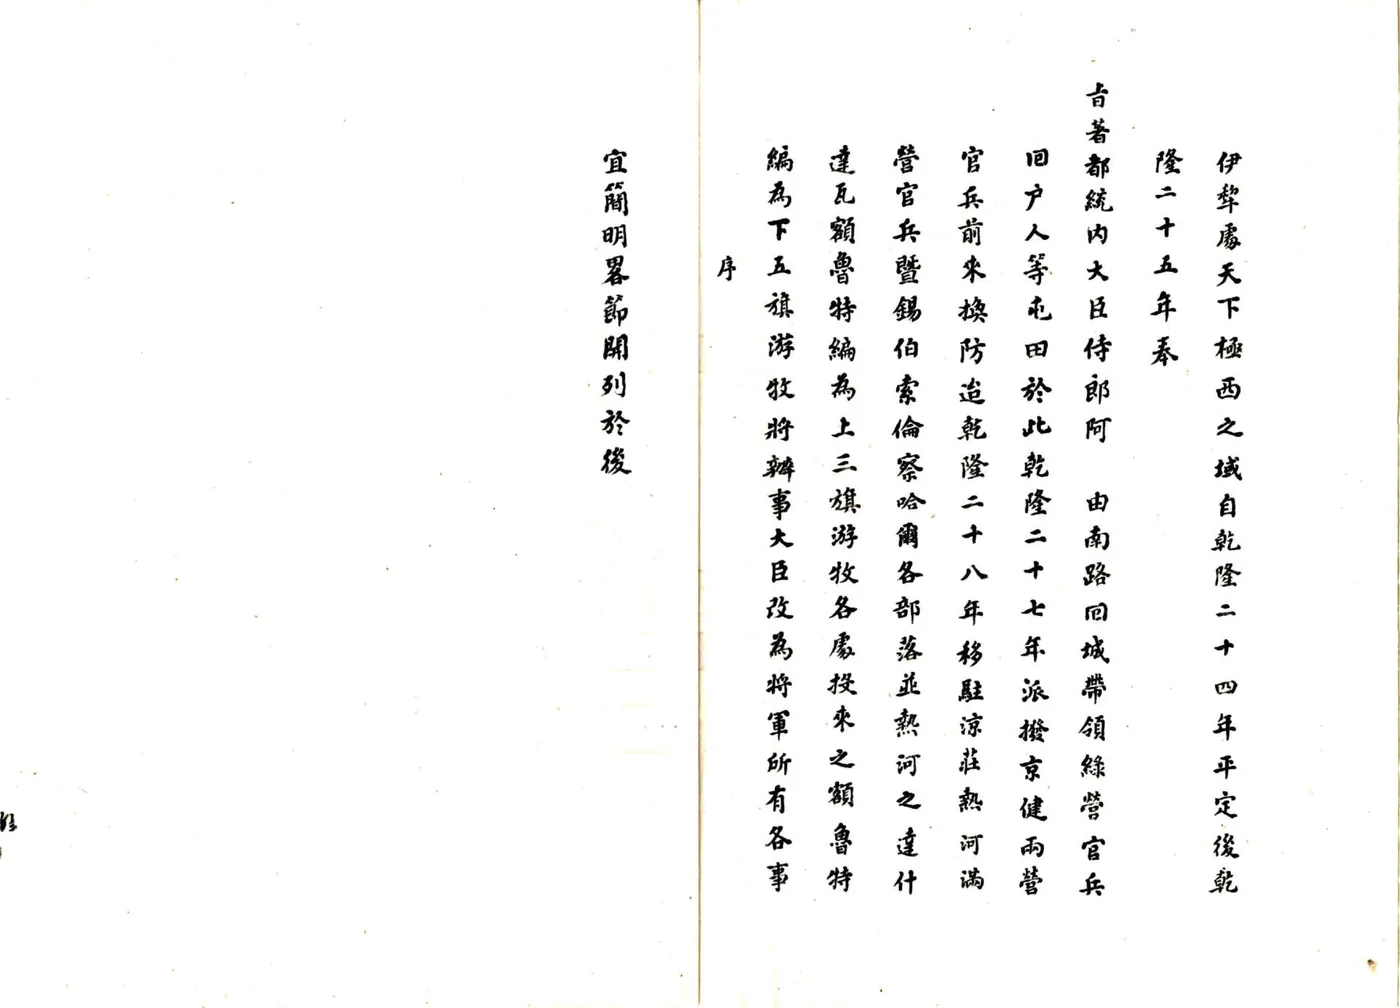 伊犂處天下極西之域自乾隆二十四年平定後乾
隆二十五年奉
旨著都統內大臣侍郎阿　由南路回城帶領綠營官兵
回户人等屯田於此乾隆二十七年派撥京健兩營
官兵前來換防迨乾隆二十八年移駐涼莊熱河滿
營官兵暨錫伯索倫察哈爾各部落並熱河之達什
達瓦額魯特編為上三旗游牧各處投來之額魯特
編為下五旗游牧將辦事大臣改為將軍所有各事
序
宜簡明畧節開列於後